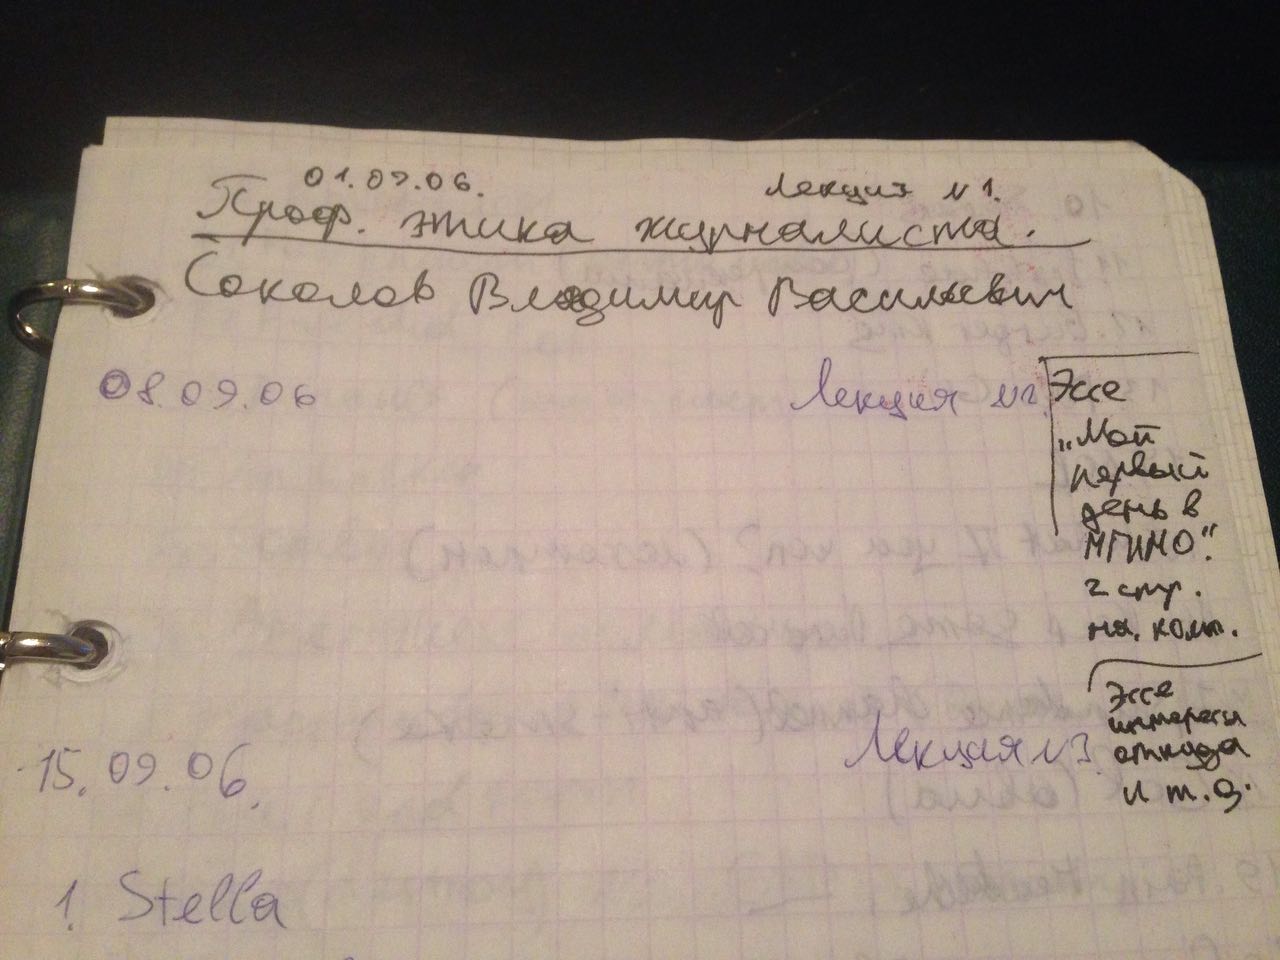 01.09.06. Лекция N1.
Проф. этика журналиста.
Соколов Владимир Васильевич
08.09.06 Лекция N2.
Эссе
„Мой
первый
день в
МГИМО".
2 стр.
на комп.
Эссе
интересы
откуда
и т.д.
15.09.06. Лекция N3.
1. Stella